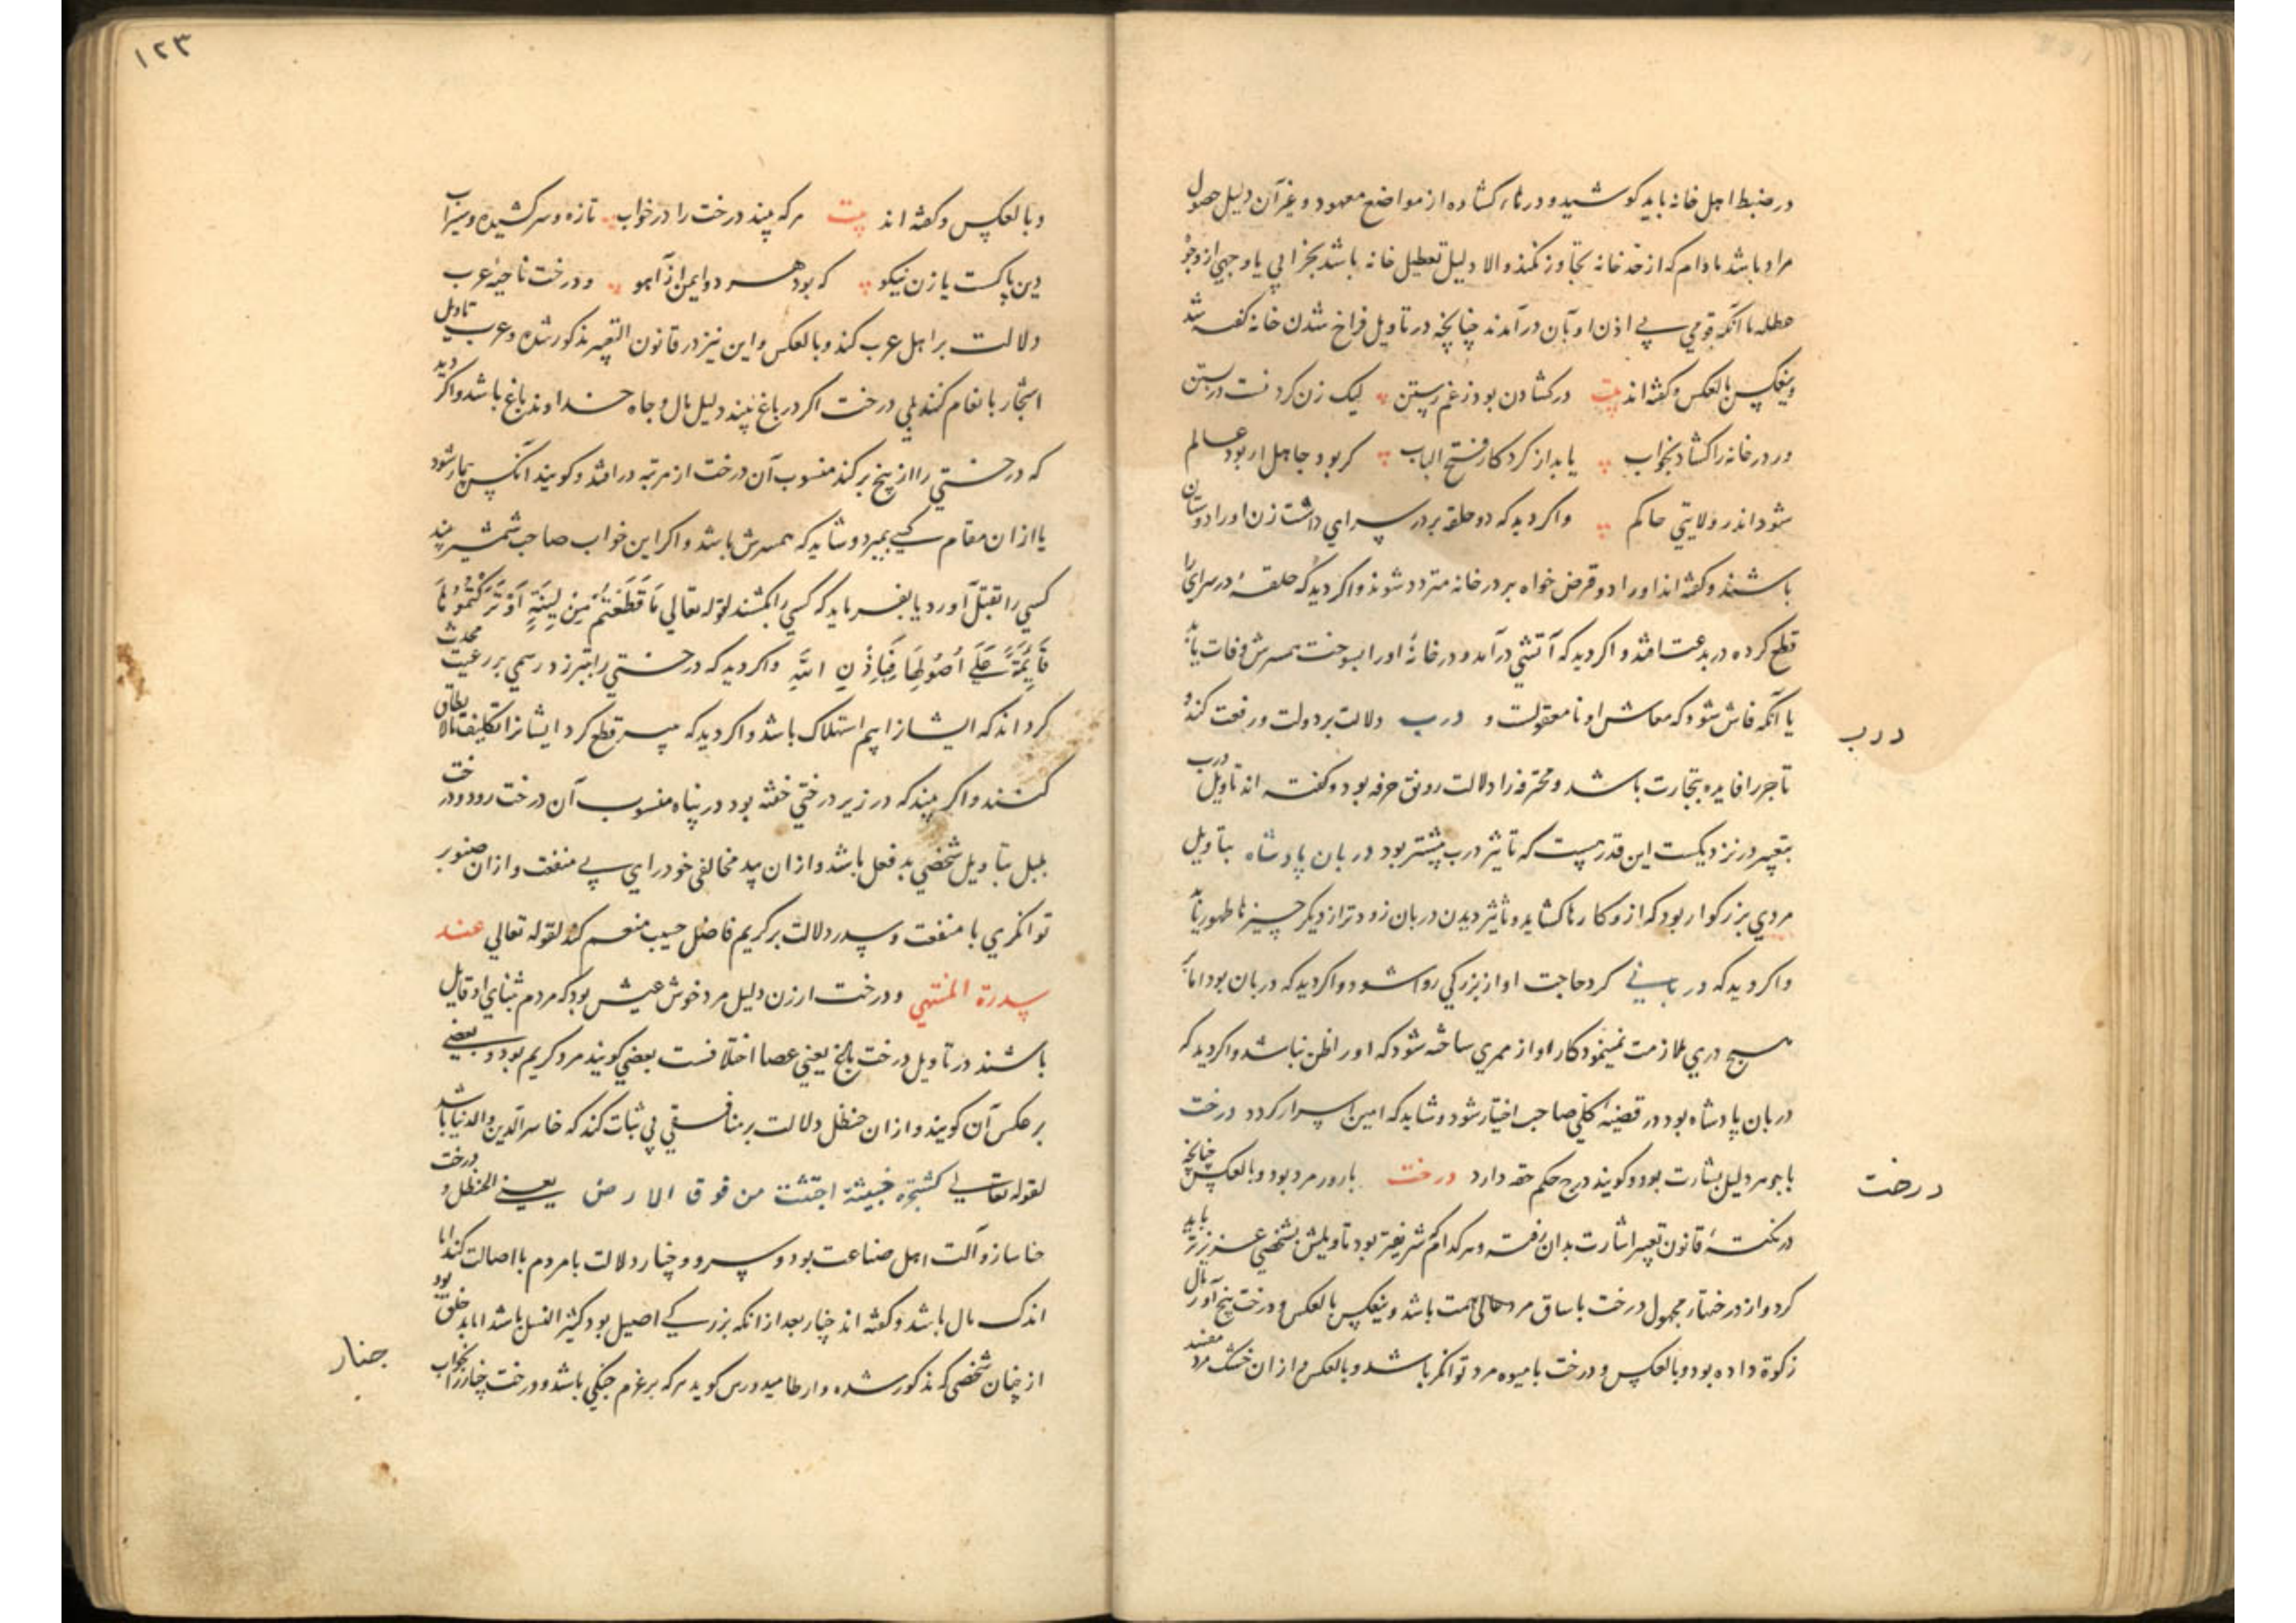 در ضبط اهل خانه باید کوشید و درهاء کشاده از مواضع معهود و غیر آن دلیل حصول
مراد باشد مادام که از حد خانه تجاوز نکند و الا دلیل تعطیل خانه باشد بخرابی یا وجهی از وجوه
عطله یا آنکه قومی بی اذن او بآن درآمدند چنانچه در تاویل فراخ شدن خانه گفته شد
وینعکس بالعکس و گفته اند بیت در کشادن بود ز غم رستن لیک زن کردنست در بستن
ور در خانه را کشاد بخواب یابد از کردکار فتح الباب گر بود جاهل ار بود عالم
شود اندر ولایتی حاکم و اگر دید که دو حلقه بر در سرای داشت زن او را دوستان
باشند و گفته اند او را دو قرض خواه بر در خانه متردد شوند و اگر دید که حلقهٔ در سرای را
قطع کرده در بدعت افتد و اگر دید که آتشی درآمد و در خانهٔ او را بسوخت همسرش وفات یابد
یا آنکه فاش شود که معاش او نامعقولست و درب دلالت بر دولت و رفعت کند و
درب
تاجر را فایده بتجارت باشد و محترفه را دلالت رونق حرفه بود و گفته اند تاویل درب
بتعبیر در نزدیکست این قدر هست که تاثیر درب بیشتر بود دربان پادشاه بتاویل
مردی بزرگوار بود که ازو کارها کشاید و تاثیر دیدن دربان زودتر از دیگر چیزها ظهور یابد
و اگر دید که دربانی کرد حاجت او از بزرگی روا شود و اگر دید که دربان بود اما
هیچ دری ملازمت نمینمود کار او از ممری ساخته شود که او را ظن نباشد و اگر دید که
دربان پادشاه بود در قضیهٔ کلی صاحب اختیار شود و شاید که امین اسرار گردد درخت
با جوهر دلیل بشارت بود و گویند درج حکم حقه دارد درخت بارور مرد بود وبالعکس چنانچه
درخت
در نکتهٔ قانون تعبیر اشارت بدان رفته و هر کدام شریفتر بود تاویلش بشخصی عزیزتر باید
کرد و از درختهاء مجهول درخت با ساق مرد عالی همت باشد وینعکس بالعکس و درخت بیخ آور مال
زکوة داده بود وبالعکس و درخت با میوه مرد توانگر باشد وبالعکس و از آن خشک مرد مفسد
۱۲۳
وبالعکس و گفته اند بیت هر که بیند درخت را در خواب تازه و سر کشیده و سیراب
دین پاکست یا زن نیکو که بود هر دو ایمن از آهو و درخت ناحیهٔ عرب
دلالت بر اهل عرب کند وبالعکس و این نیز در قانون التعبیر مذکور شده و عرب تاویل
اشجار بانعام کنند بلی درخت اگر در باغ بیند دلیل مال و جاه خداوند باغ باشد و اگر دید
که درختی را از بیخ برکند منسوب آن درخت از مرتبه درافتد و گویند آنکس بیمار شود
یا از ان مقام کسی بمیرد و شاید که همسرش باشد و اگر این خواب صاحب شمشیر بیند
کسی را بقتل آورد یا بفرماید که کسی را بکشند لقوله تعالی مَا قَطَعْتُمْ مِنْ لِینَةٍ اَوْ تَرَکْتُمُوهَا
قَائِمَةً عَلَی اُصُولِهَا فَبِاِذْنِ اللّهِ و اگر دید که درختی را تبر زد رسمی بر رعیت محدث
گرداند که ایشانرا بیم استهلاک باشد و اگر دید که قطع کرد ایشانرا تکلیف مالا یطاق
کنند و اگر بیند که در زیر درختی خفته بود در پناه منسوب آن درخت رود و درخت
بتاویل شخصی بدفعل باشد و از ان بید مخالفی خودرای بی منفعت و از ان صنوبر
توانگری با منفعت و سدر دلالت بر کریم فاضل حسیب منعم کند لقوله تعالی عند
سدرة المنتهی و درخت ارزن دلیل مرد خوش عیش بود که مردم بثنای او قایل
باشند در تاویل درخت بلخ یعنی عصا اختلافست بعضی گویند مرد کریم بود و بعضی
بر عکس آن گویند و از ان حنظل دلالت بر منافقی بی ثبات کند که خاسر الدین والدنیا باشد
لقوله تعالی کشجرة خبیثة اجتثت من فوق الارض یعنی الحنظل و درخت
حنا ساز و آلت اهل صناعت بود و سرو و چنار دلالت بامردم با اصالت کند اما
اندک مال باشد و گفته اند چنار بعد از انکه بزرگی اصیل بود کثیر النسل باشد اما بدخلق بود
از چنان شخصی که مذکور شده و ارطامیدورس گوید هر که بر عزم جنگی باشد و درخت چنار را بخواب
جنار